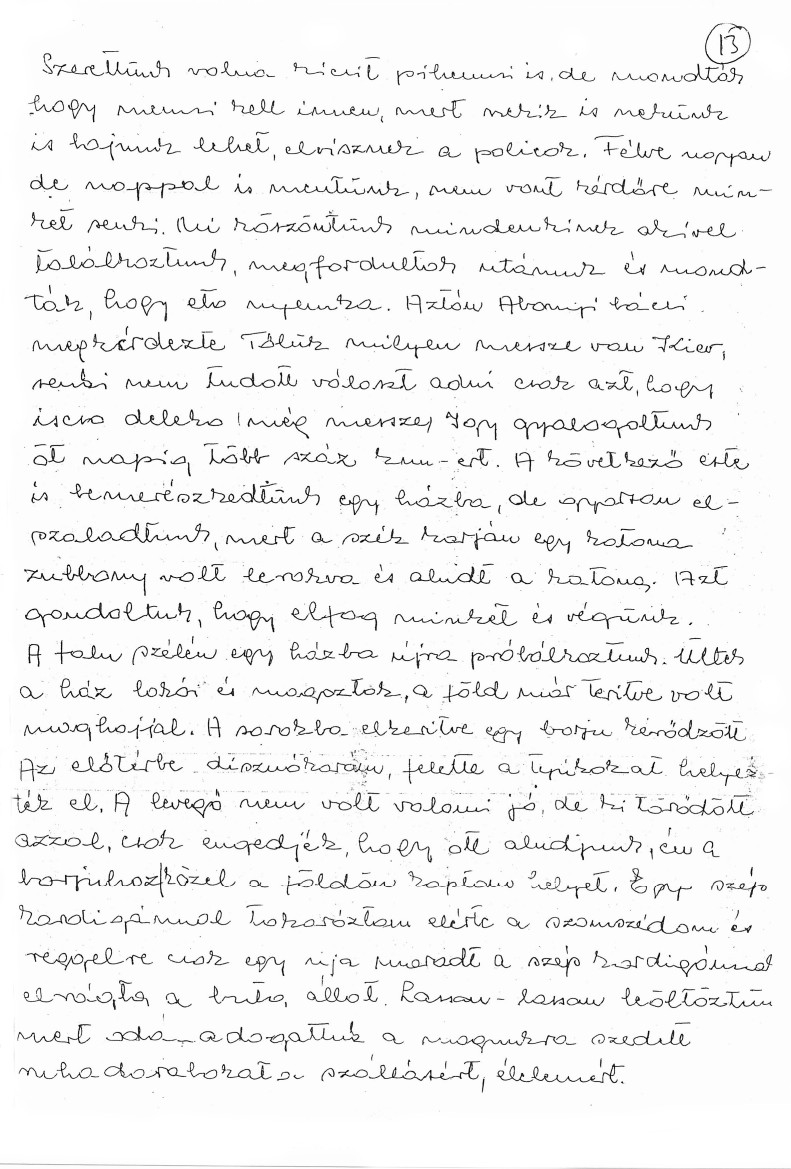 13
Szerettünk volna kicsit pihenni is, de mondták
hogy menni kell innen, mert nekik is nekünk
is bajunk lehet, elvisznek a policok. Félve nagyon
de nappal is mentünk, nem vont kérdőre min-
ket senki. Mi köszöntünk mindenkinek akivel
találkoztunk, megfordultak utánunk és mond-
ták, hogy eto nyemka. Aztán Abonyi bácsi
megkérdezte Tőlük milyen messze van Kiev,
senki nem tudott választ adni csak azt, hogy
iscso deleko (még messze) Igy gyalogoltunk
öt napig több száz km-ert. A következő este
is bemerészkedtünk egy házba, de gyorsan el-
szaladtunk, mert a szék karján egy katona
zubbony volt lerakva és aludt a katona. Azt
gondoltuk, hogy elfog minket és végünk.
A falu szélén egy házba újra próbálkoztunk. Ültek
a ház lakói és magoztak, a föld már terítve volt
maghajjal. A sarokba elkeritve egy borju kérődzött
Az előtérbe disznókarám, felette a tyúkokat helyez-
ték el. A levegő nem volt valami jó, de ki törődött
azzal, csak engedjék, hogy ott aludjunk, én a
borjuhoz közel a földön kaptam helyet. Egy szép
kardigánnal takaróztam elérte a szomszédom és
reggelre csak egy ujja maradt a szép kardigánnak
elrágta a buta állat. Lassan-lassan leöltöztün
mert oda-adogattuk a magunkra szedett
ruhadarabokat a szállásért, élelemért.